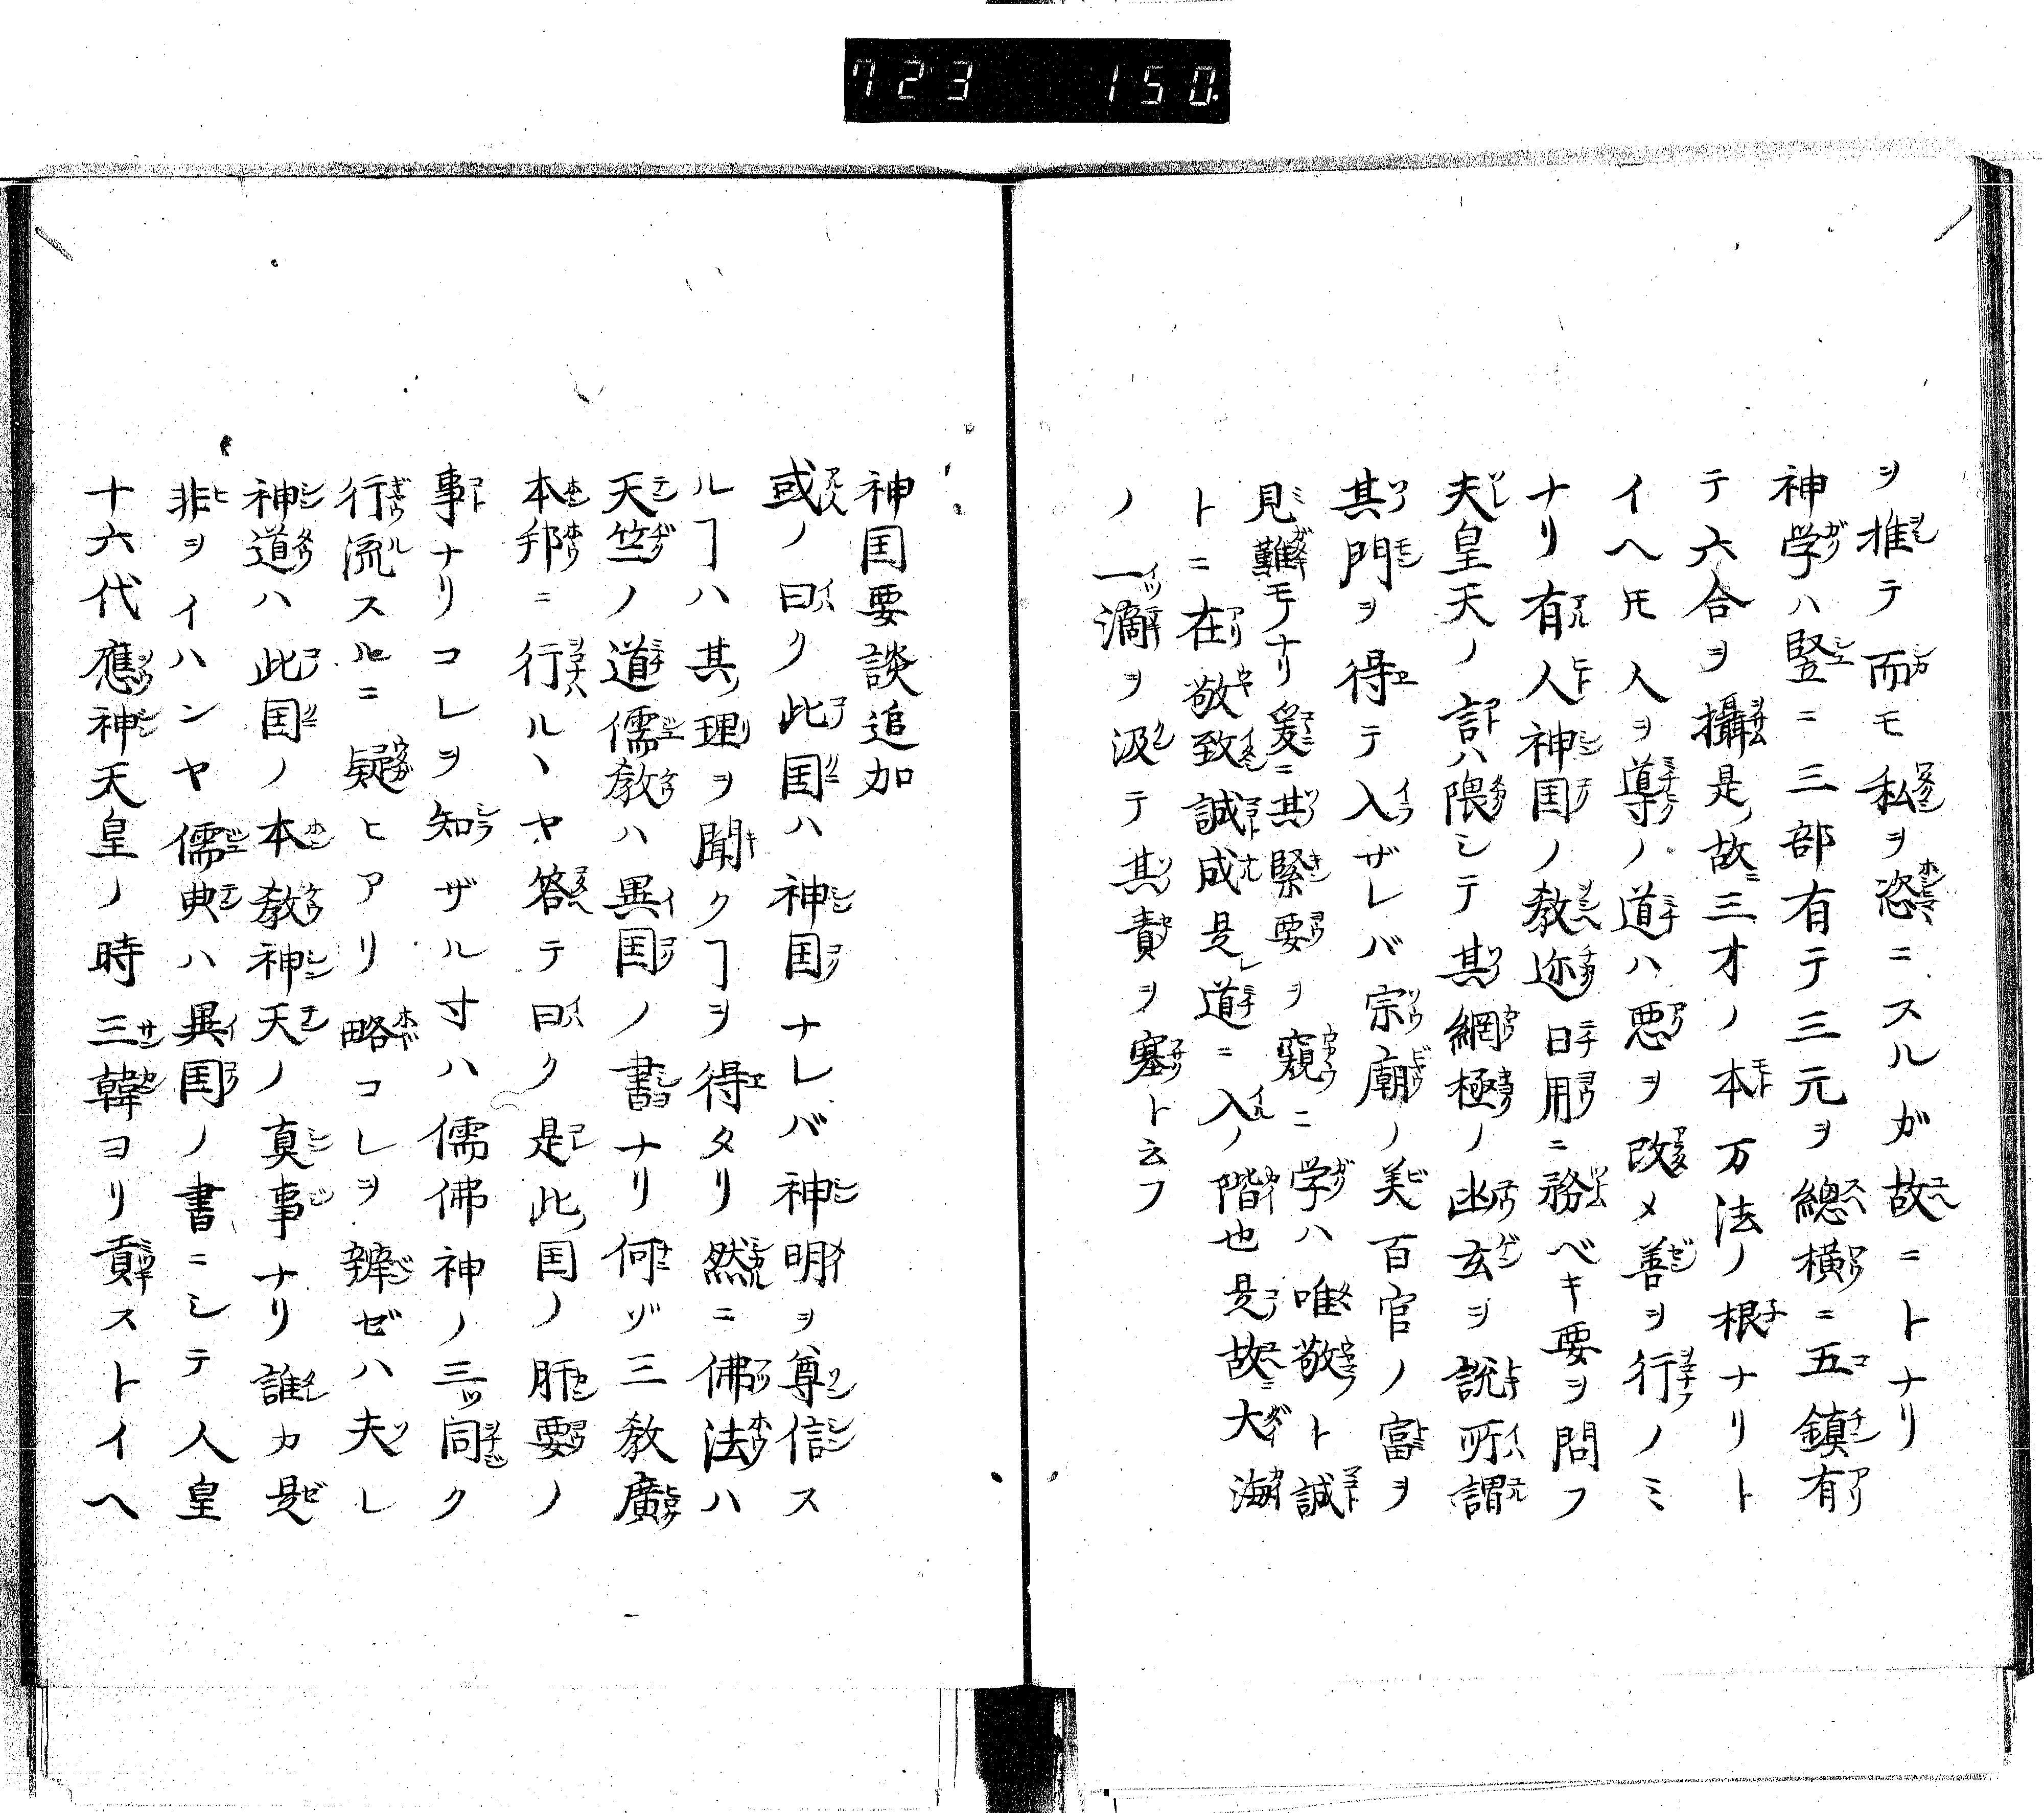 723 150.
ヲ推テ而モ私ヲ恣ニスルガ故ニトナリ
神学ハ竪ニ三部有テ三元ヲ總横ニ五鎮有
テ六合ヲ攝是故ニ三才ノ本万法ノ根ナリト
イヘ𪜈人ヲ導ノ道ハ悪ヲ改メ善ヲ行ノミ
ナリ有人神国ノ教迩日用ニ務ベキ要ヲ問フ
夫皇天ノ言ハ隈シテ其網極ノ幽玄ヲ説所謂
其門ヲ得テ入ザレバ宗廟ノ美百官ノ富ヲ
見難モノナリ爰ニ其緊要ヲ窺ニ学ハ唯敬ト誠
トニ在敬致誠成是道ニ入ノ階也是故ニ大海
ノ一滴ヲ汲テ其責ヲ塞ト云フ
神国要談追加
或ノ曰ク此国ハ神国ナレバ神明ヲ尊信ス
ルヿハ其理ヲ聞クヿヲ得タリ然ニ佛法ハ
天竺ノ道儒教ハ異国ノ書ナリ何ゾ三教廣
本邦ニ行ルヽヤ答テ曰ク是此国ノ肝要ノ
事ナリコレヲ知ザル寸ハ儒佛神ノ三ツ同ク
行流スルニ疑ヒアリ略コレヲ辨ゼハ夫レ
神道ハ此国ノ本教神天ノ真事ナリ誰カ是
非ヲイハンヤ儒典ハ異国ノ書ニシテ人皇
十六代應神天皇ノ時三韓ヨリ貢ストイヘ